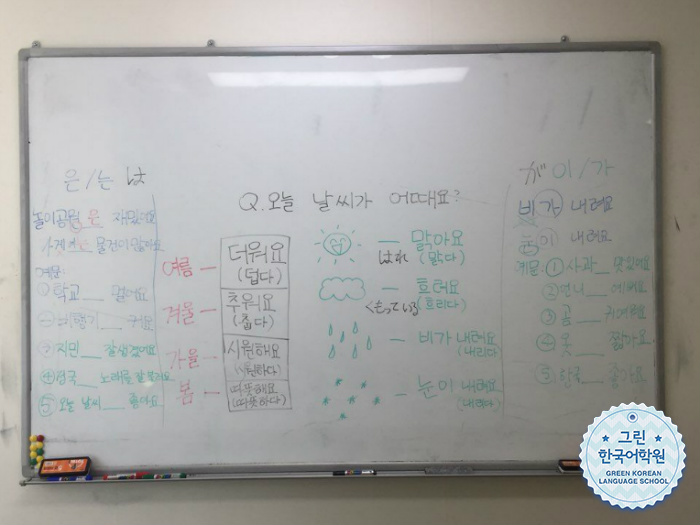 은/는 は
놀이공원 은 재밌어요
물건이 많아요
예문:
① 학교__ 멀어요
② 비행기__ 커요
③ 지민__ 잘생겼어요
④ 영국__ 노래를 잘 불러요
⑤ 오늘 날씨__ 좋아요
Q. 오늘 날씨가 어때요?
여름 — 더워요
(덥다)
겨울 — 추워요
(춥다)
가을 — 시원해요
(시원하다)
봄 — 따뜻해요
(따뜻하다)
— 맑아요
はれ (맑다)
— 흐려요
くもっている (흐리다)
— 비가 내려요
(내리다)
— 눈이 내려요
(내리다)
が 이/가
비 가 내려요
눈 이 내려요
예문: ① 사과__ 맛있어요
② 언니__ 예뻐요
③ 곰__ 귀여워요
④ 옷__ 짧아요
⑤ 한국__ 좋아요
그린
한국어학원
GREEN KOREAN
LANGUAGE SCHOOL